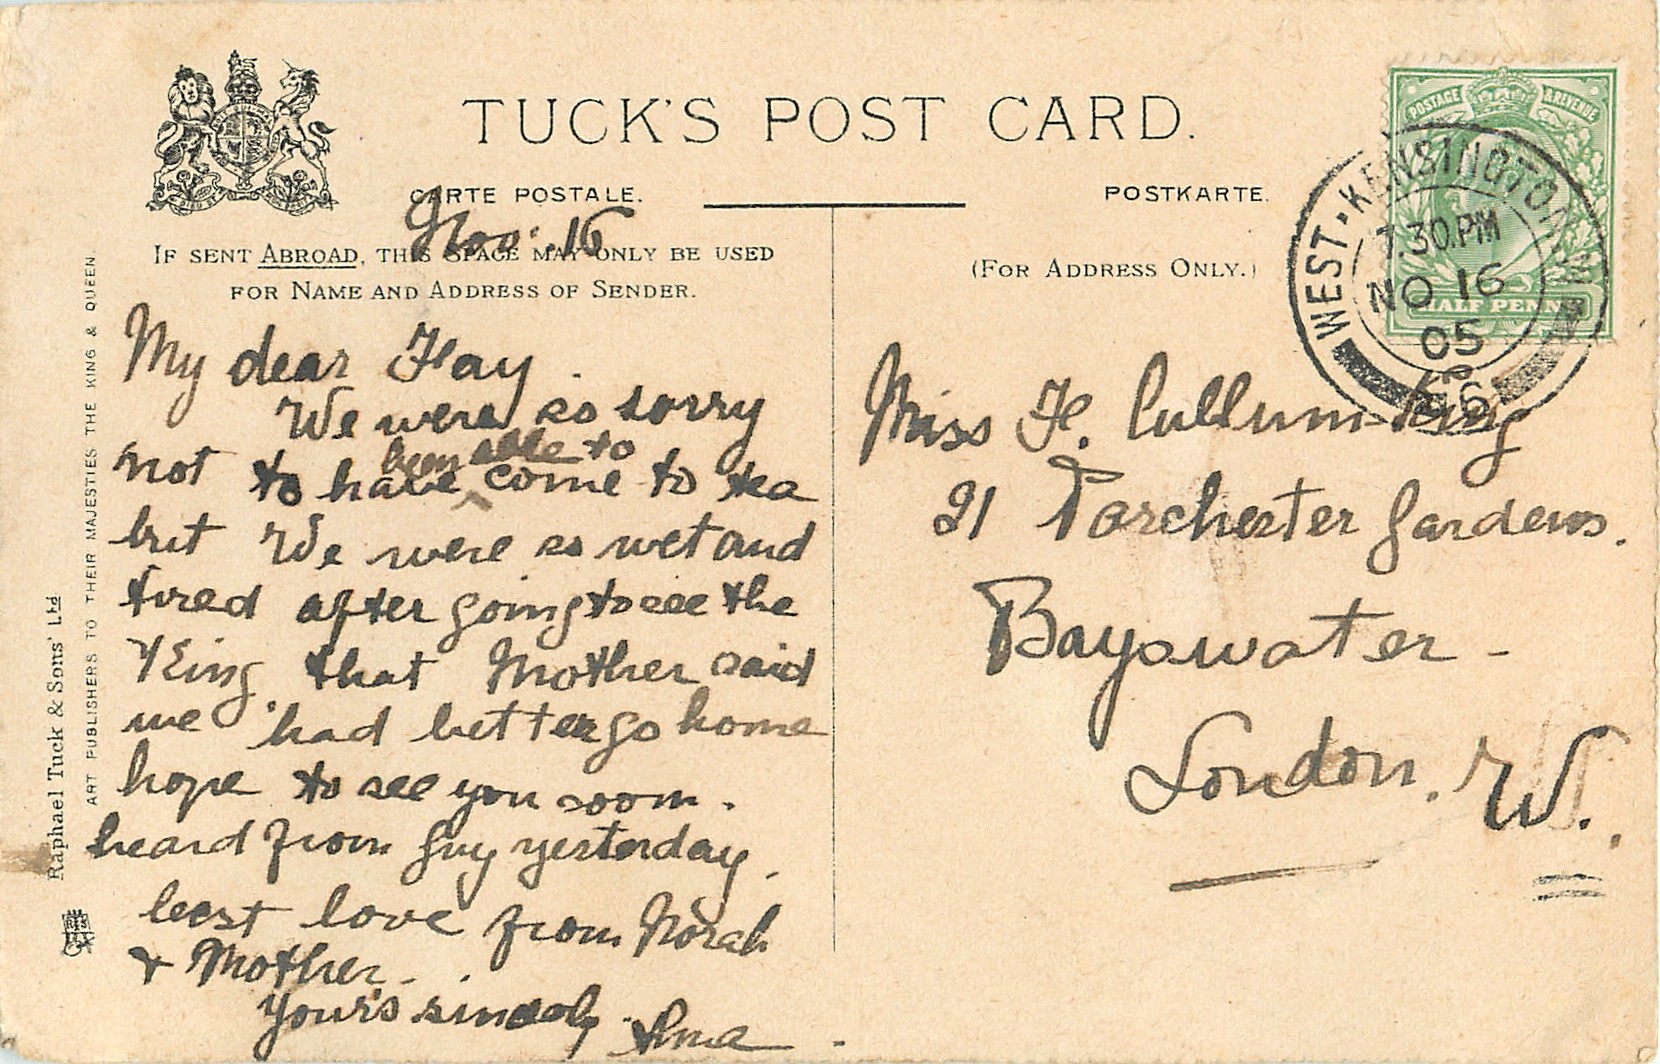 TUCK'S POST CARD.
CARTE POSTALE.
POSTKARTE.
Nov. 16
IF SENT ABROAD, THIS SPACE MAY ONLY BE USED
FOR NAME AND ADDRESS OF SENDER.
(FOR ADDRESS ONLY.)
My dear Fay.
We were so sorry
been able to
not to have ^ come to tea
but We were so wet and
tired after going to see the
King, that Mother said
we had better go home
hope to see you soon.
heard from Guy yesterday.
best love from Norah
& Mother.
Yours sincerly
Miss F. Cullum-King
21 Porchester Gardens.
Bayswater -
London. W.
POSTAGE & REVENUE
HALF PENNY
WEST·KENSINGTON
7.30.PM
NO 16
05
Raphael Tuck & Sons' Ltd
ART PUBLISHERS TO THEIR MAJESTIES THE KING & QUEEN.